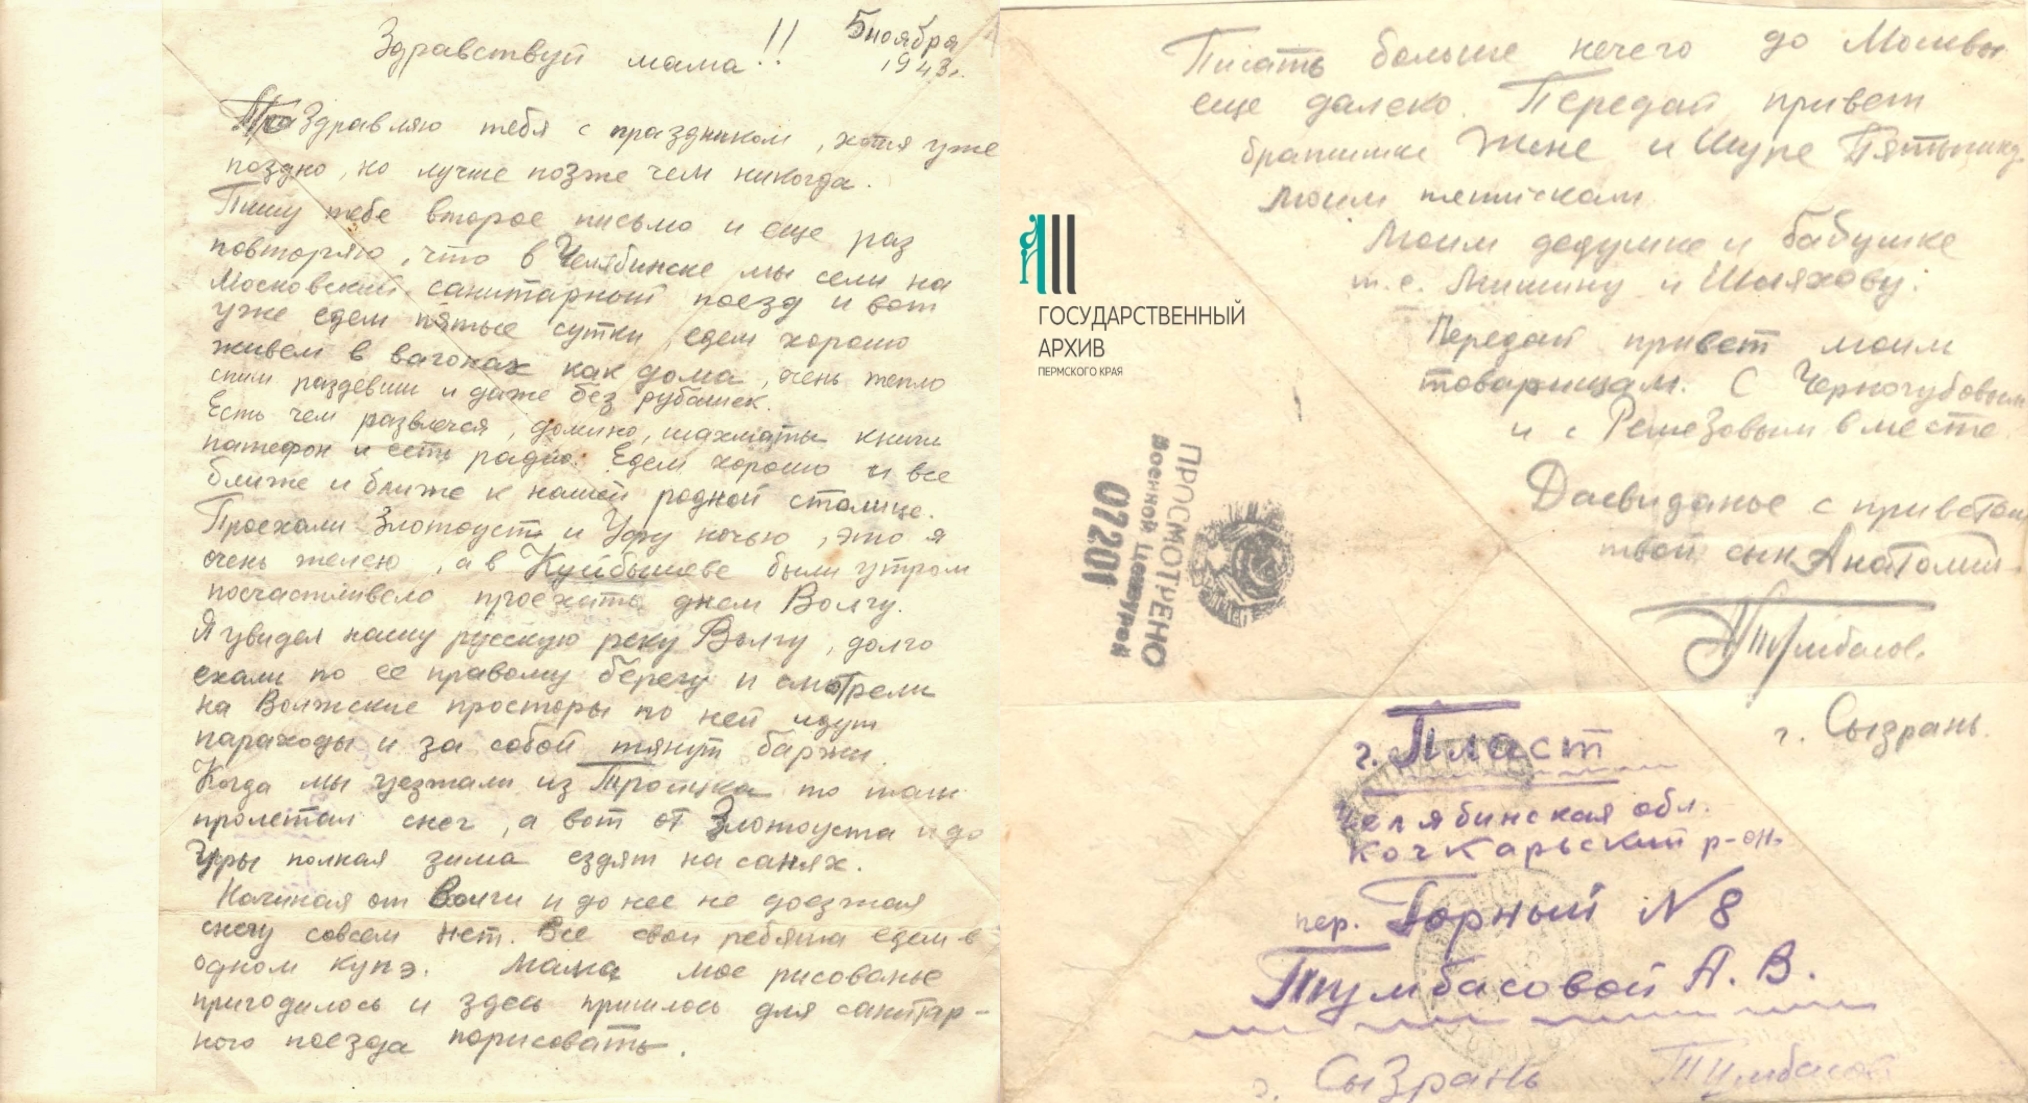 Здравствуй мама!! 5 ноября
1943г.
Поздравляю тебя с праздником, хотя уже
поздно, но лучше позже чем никогда.
Пишу тебе второе письмо и еще раз
повторяю, что в Челябинске мы сели на
Московский санитарный поезд и вот
уже едем пятые сутки, едем хорошо
живем в вагонах как дома, очень тепло
спим раздевши и даже без рубашек.
Есть чем развлечся, домино, шахматы книги
патефон и есть радио. Едем хорошо и все
ближе и ближе к нашей родной столице.
Проехали Златоуст и Уфу ночью, это я
очень желею, а в Куйбышеве были утром
посчастливело проехать днем Волгу.
Я увидел нашу русскую реку Волгу, долго
ехали по ее правому берегу и смотрели
на Волжские просторы по ней идут
параходы и за собой тянут баржи.
Когда мы уезжали из Троицка то там
пролетал снег, а вот от Златоуста и до
Уфы полная зима ездят на санях.
Начиная от Волги и до нее не доезжая
снегу совсем нет. Все свои ребята едем в
одном купэ. Мама мое рисованье
пригодилось и здесь пришлось для санитар-
ного поезда порисовать.
Писать больше нечего до Москвы
еще далеко. Передай привет
братишке Жене и Шуре
Моим
Моим дедушке и бабушке
т.е. Мишину и Шляхову:
Передай привет моим
товарищам. С Черногубовым
и с Ремезовым вместе
Досвиданье с приветом
твой сын Анатолий
Тумбасов.
г. Сызрань.
ГОСУДАРСТВЕННЫЙ
АРХИВ
ПЕРМСКОГО КРАЯ
ПРОСМОТРЕНО
Военной Цензурой
07201
г. Пласт
Челябинская обл.
Кочкарьский р-он.
пер. Горный № 8
Тумбасовой А. В.
г. Сызрань Тумбасов